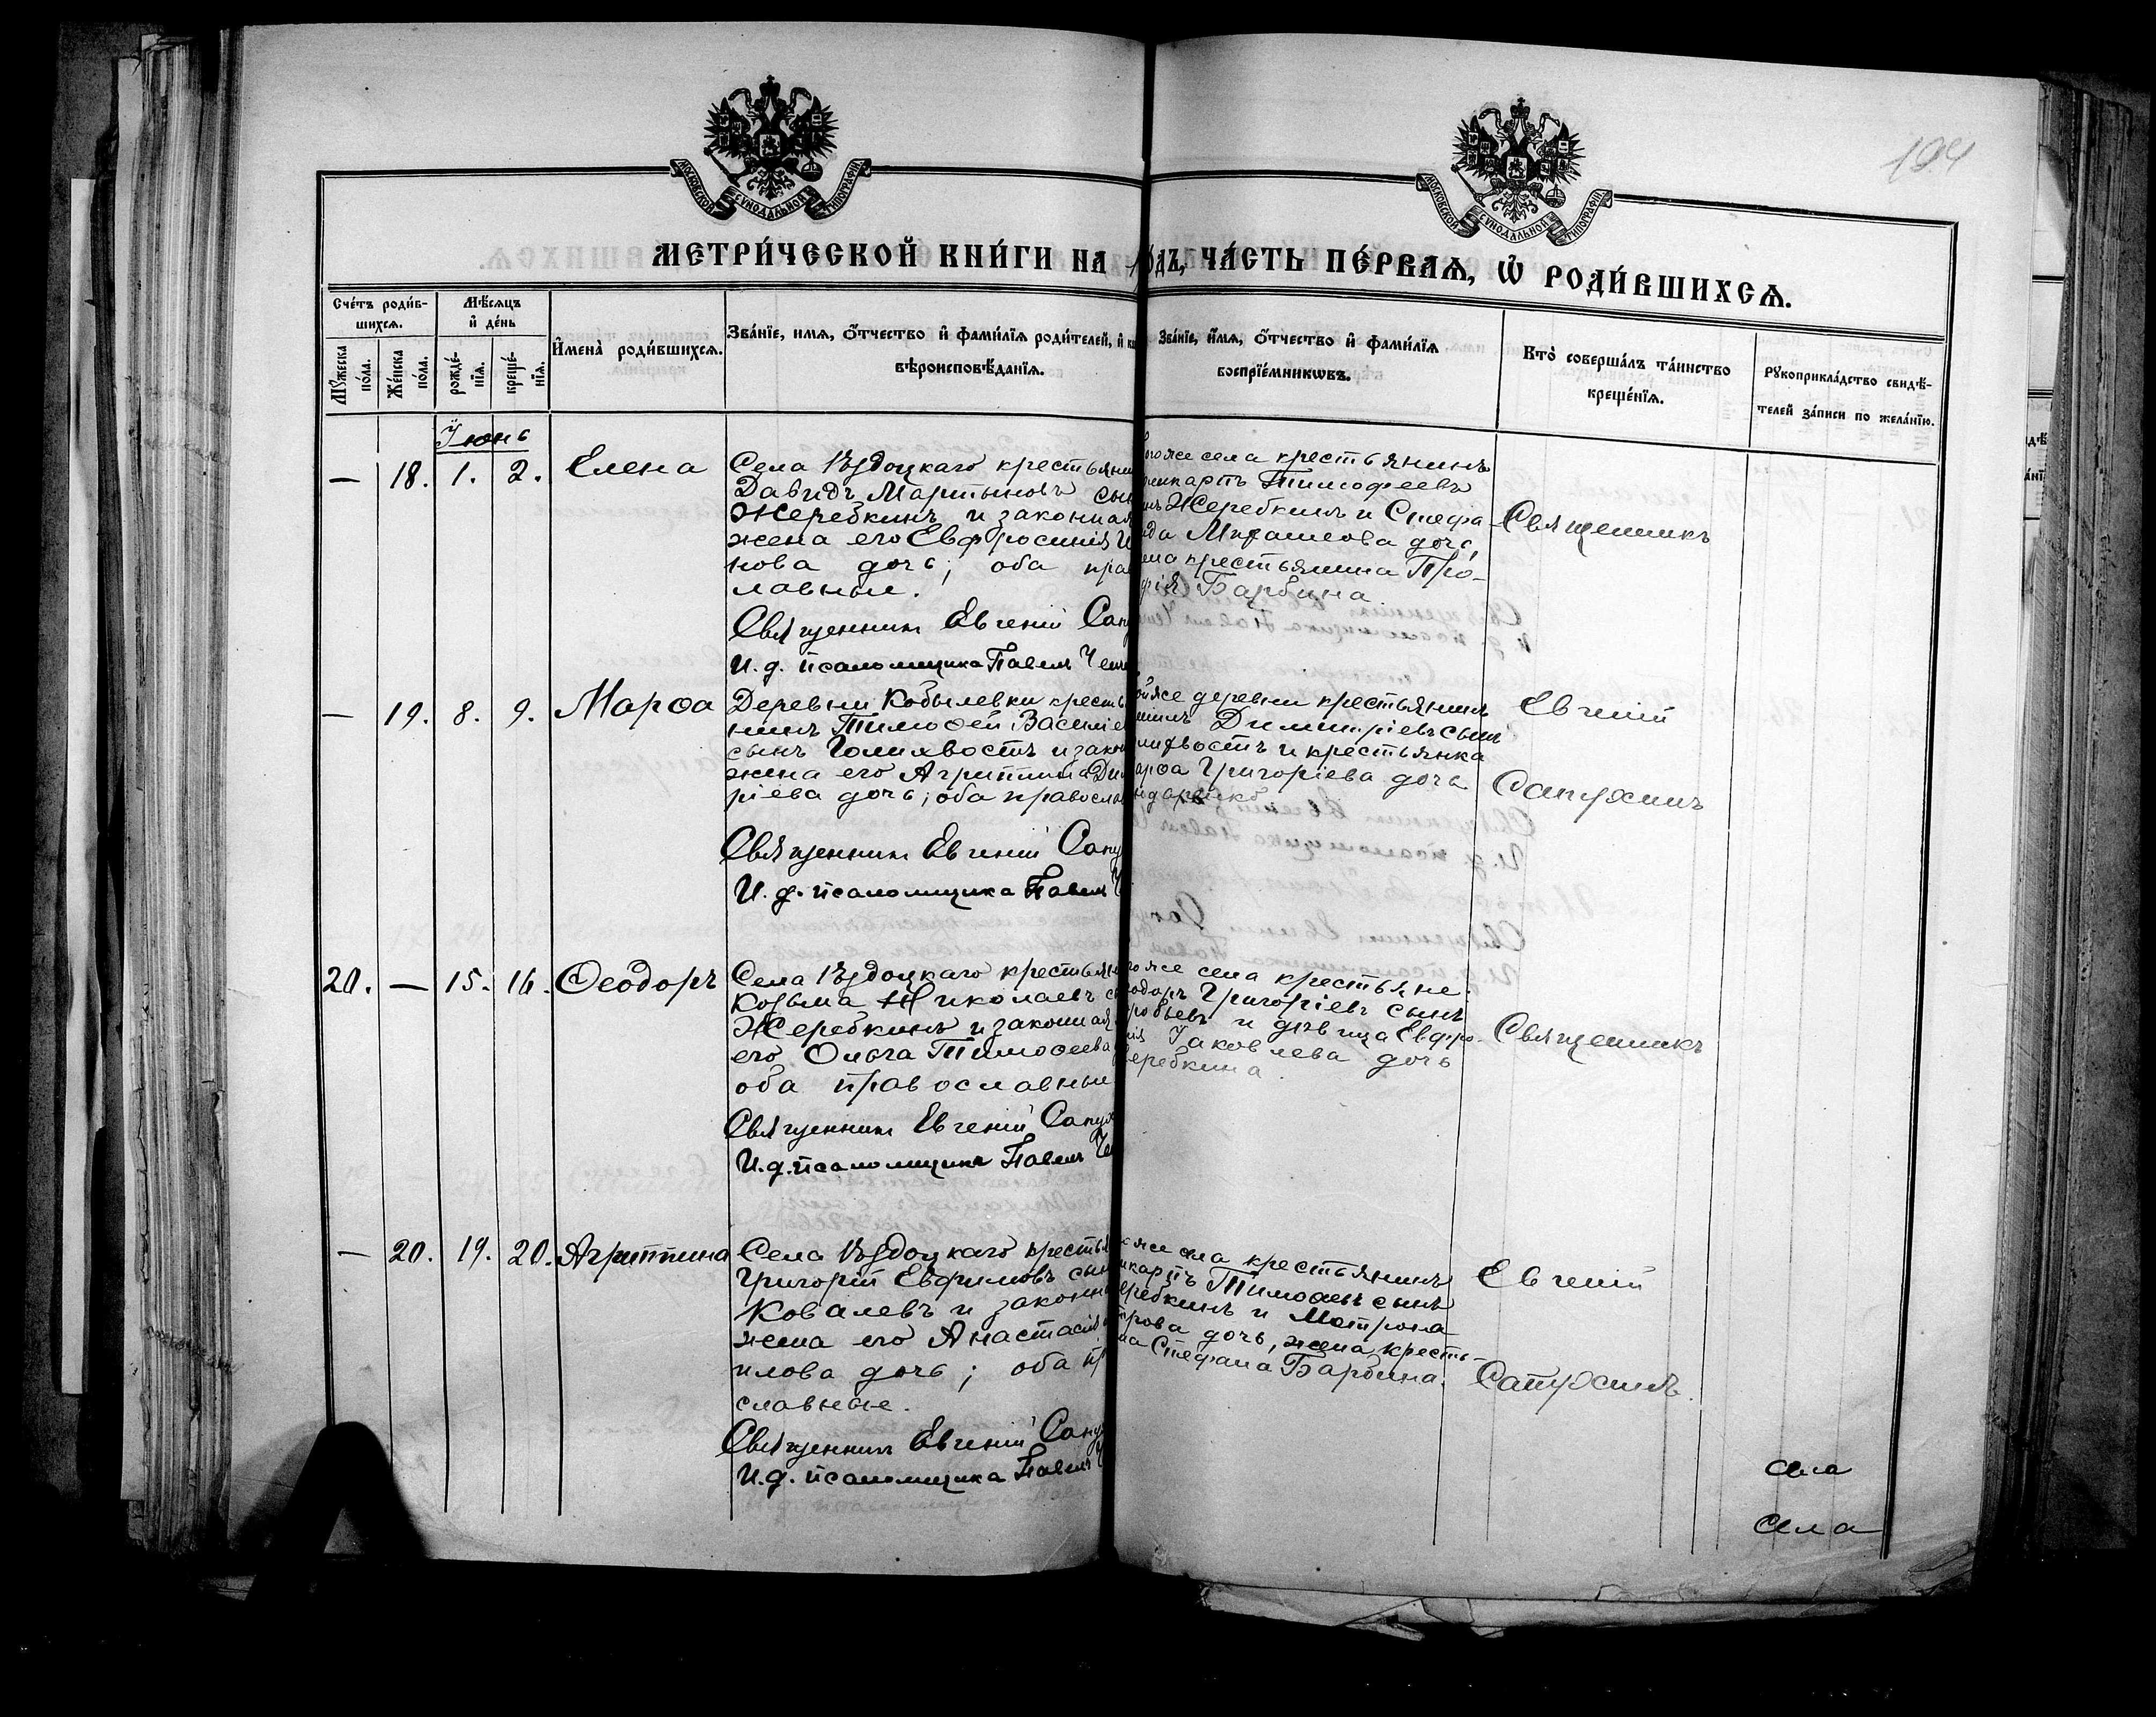 194
МОСКОВСКОЙ СУНОДАЛЬНОЙ ТИПОГРАФІИ
МОСКОВСКОЙ СУНОДАЛЬНОЙ ТИПОГРАФІИ
МЕТРИ́ЧЕСКОЙ КНИ́ГИ НА
ДЪ, ЧА́СТЬ ПЕ́РВАѦ, Ѡ РОДИ́ВШИХСѦ.
Сче́тъ роди́в-
шихсѧ.
Мѣ́сѧцъ
и҆ де́нь
Мꙋ́жеска
по́ла.
Же́нска
по́ла.
рожде́-
нїѧ.
креще́-
нїѧ.
И҆мена̀ роди́вшихсѧ.
Зва́нїе, имѧ, ѻ҆́тчество и҆ фами́лїѧ роди́телей, и҆
вѣ̀роисповѣ́данїѧ.
Зва́нїе, и҆́мѧ, ѻ҆́тчество и҆ фами́лїѧ
воспрїе́мникѡвъ.
Кто̀ соверша́лъ та́инство
креще́нїѧ.
Рꙋкоприкла́дство свидѣ́-
телей за́писи по жела́нїю.
Іюнь
— 18. 1. 2. Елена
Села Вздоцкаго крестьяни
Давидъ Мартыновъ сын
Жеребкинъ и законная
жена его Евфросинія И
нова дочь; оба прав
лавные.
Священникъ Евгеній Сапу
И. д. псаломщика Павелъ Чен
гоже села крестьянинъ
Тимофеевъ
Жеребкинъ и Стефа-
да дочь,
крестьянина Про-
фія Барбина.
Священникъ
— 19. 8. 9. Марѳа
Деревни Кобылевки кресть
нинъ Тимоѳей Василіе
сынъ Голихвостъ и закон
жена его Агриппина Дим
ріева дочь; оба правосла
Священникъ Евгеній Сапу
И. д. псаломщика Павелъ Ч
ойже деревни крестьянинъ
Димитріевъ сынъ
лихвостъ и крестьянка
арѳа Григоріева дочь
Евгеній
Сапухинъ
20. — 15. 16. Ѳеодоръ
Села Вздоцкаго крестьян
Козьма Николаевъ с
Жеребкинъ и законная
его Ольга Тимоѳеева
оба православные
Священникъ Евгеній Сапух
И. д. псаломщика Павелъ Че
гоже села крестьяне:
одоръ Григоріевъ сынъ
робьевъ и дѣвица Евфро-
нія Іаковлева дочь
еребкина.
Священникъ
— 20. 19. 20. Агриппина
Села Вздоцкаго крестья
Григорій Евфимовъ сын
Ковалевъ и законна
жена его Анастасія
илова дочь; оба пр
славные.
Священникъ Евгеній Сапу
И. д. псаломщика Павелъ Ч
оже села крестьянинъ
икарпъ Тимоѳеевъ сынъ
еребкинъ и Матрона
трова дочь, жена кресть-
на Стефана Барбина.
Евгеній
Сапухинъ.
села
села